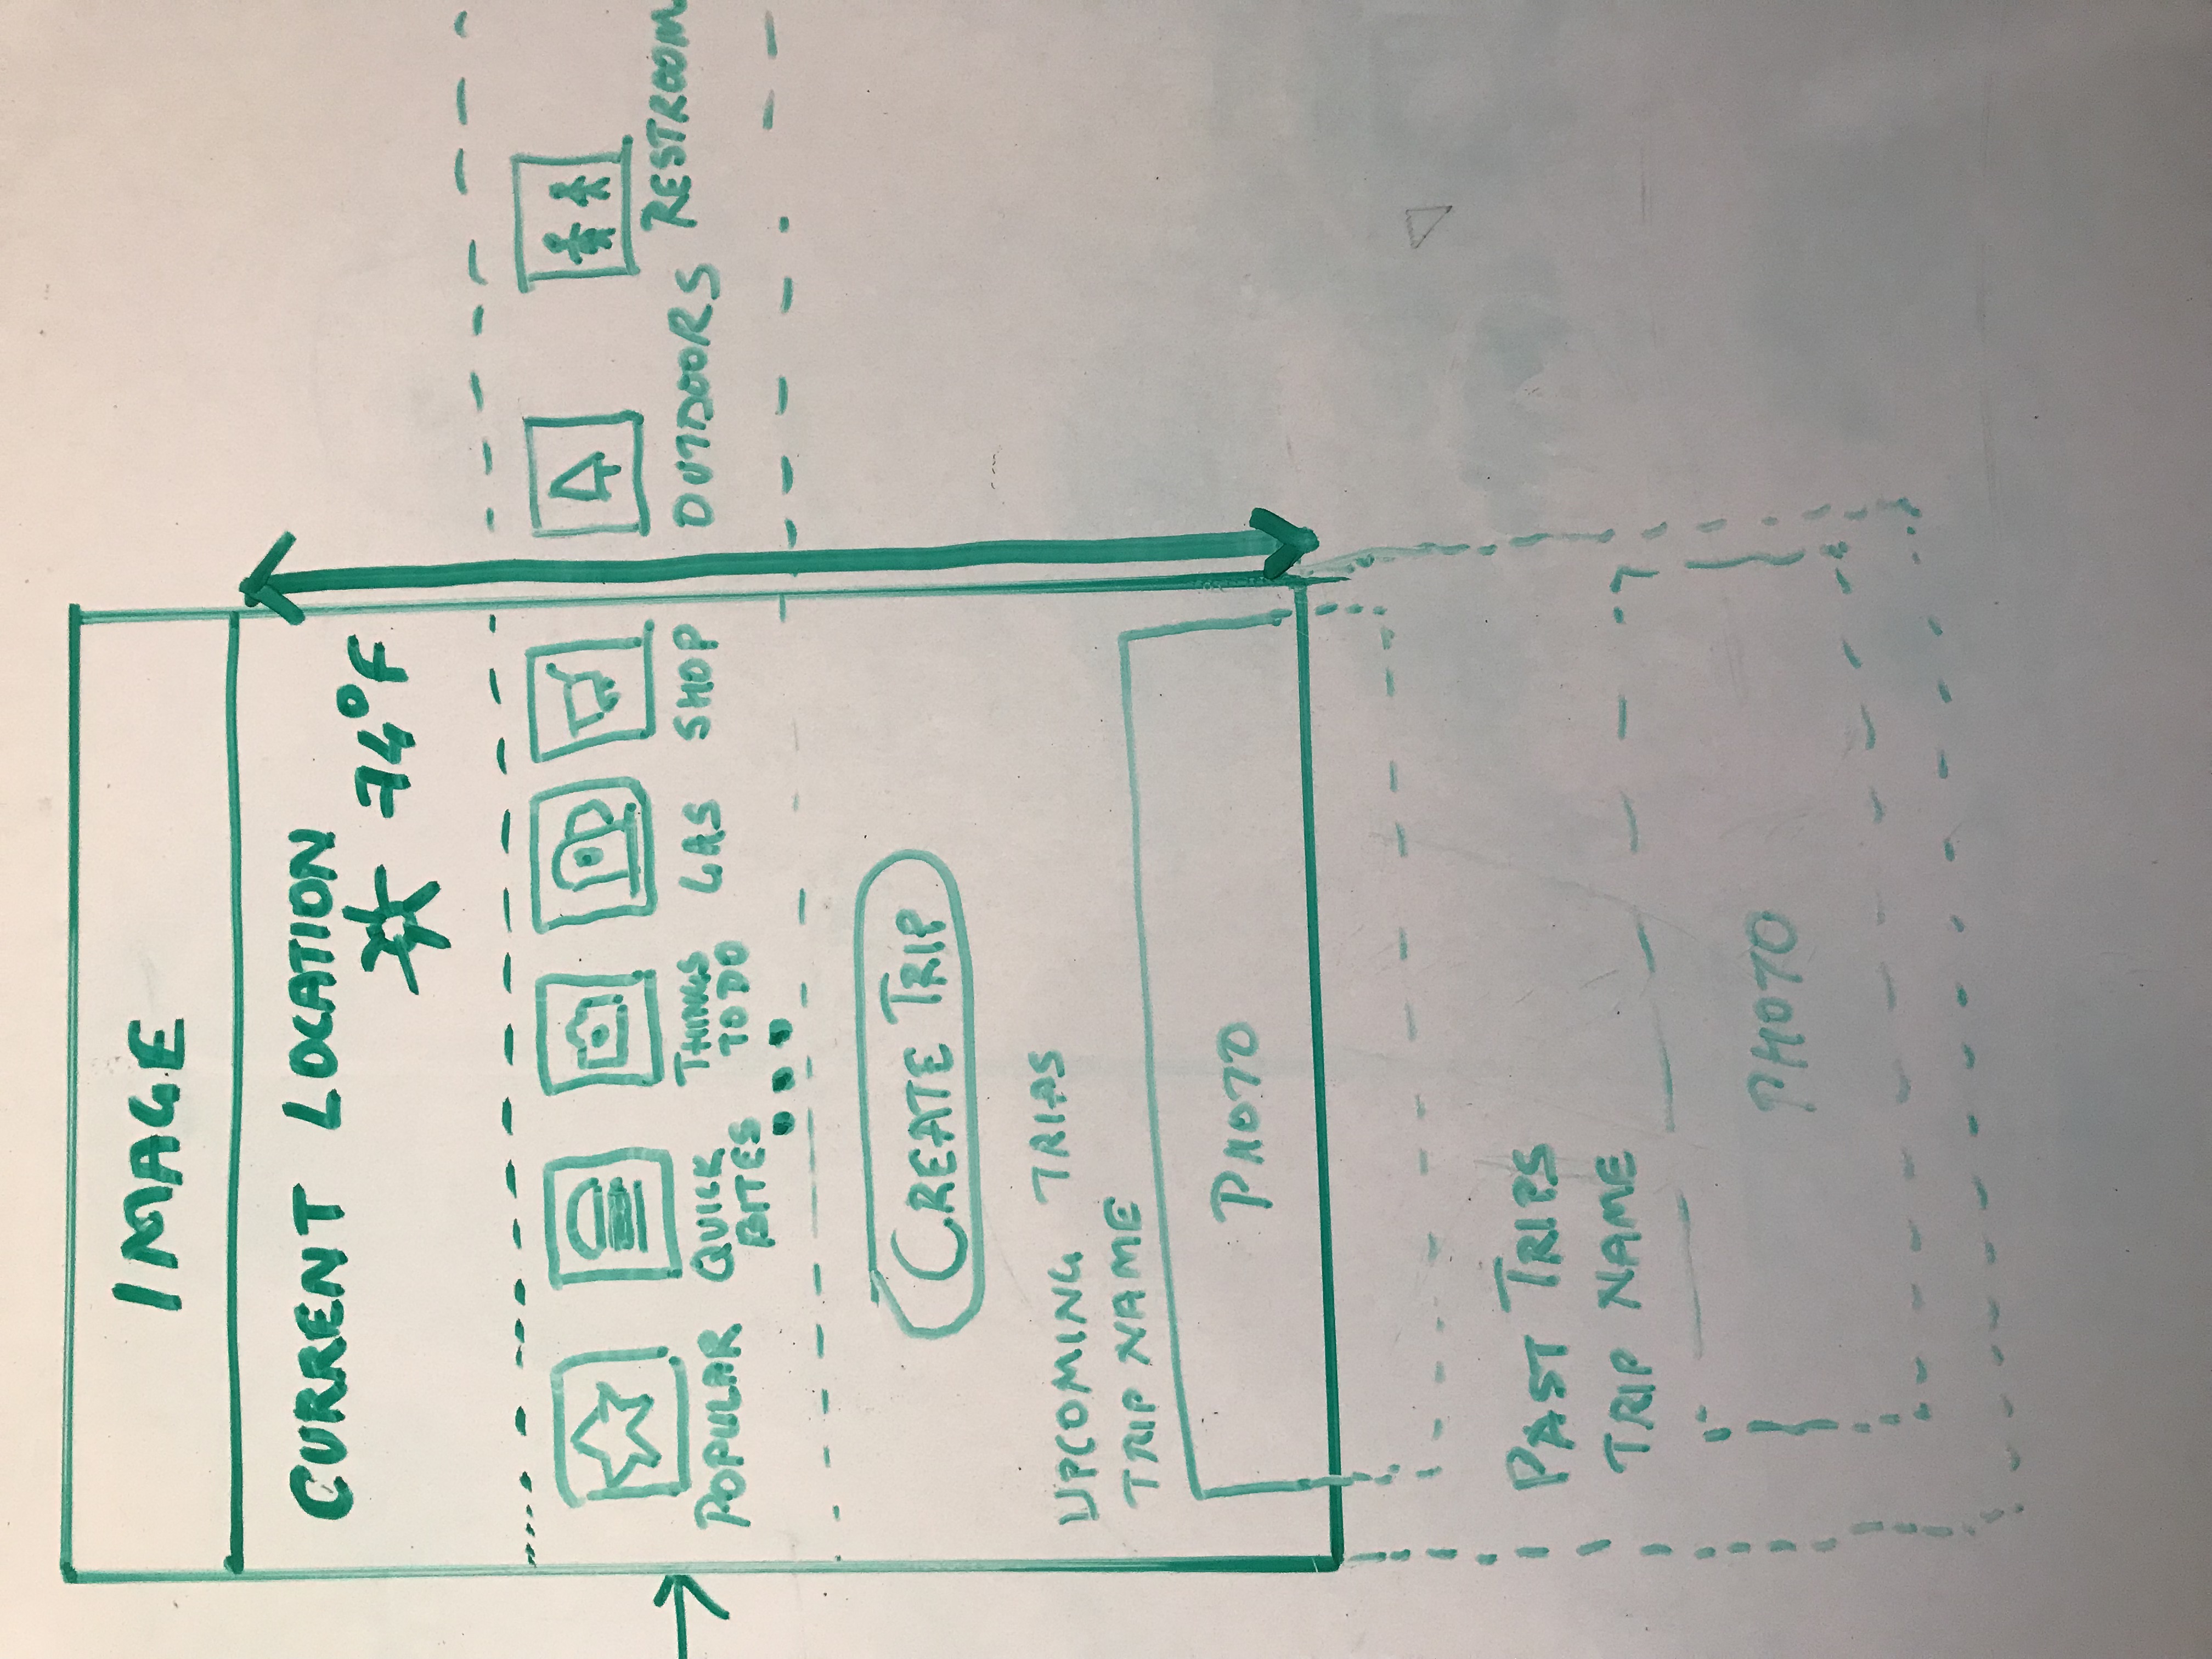 IMAGE
CURRENT LOCATION
74°F
POPULAR
QUICK
BITES
THINGS
TO DO
GAS
SHOP
OUTDOORS
RESTROOM
CREATE TRIP
UPCOMING TRIPS
TRIP NAME
PHOTO
PAST TRIPS
TRIP NAME
PHOTO